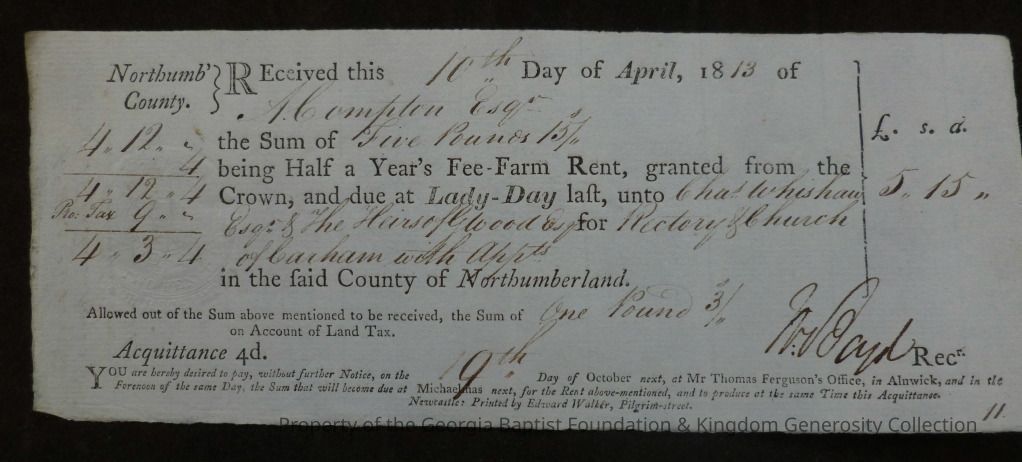 Northumb' County. } REceived this 10th Day of April, 1813 of
A. Compton Esqr.
the Sum of Five Pounds 15s/
being Half a Year's Fee-Farm Rent, granted from the
Crown, and due at Lady-Day laſt, unto Chas Whishaw
Esqr. & The Heirs of Gwood Esqr for Rectory & Church
of Carham with Appts
in the ſaid County of Northumberland.
£. s. d.
5 " 15 "
4 " 12 " "
4
4 " 12 " 4
Pro: Tax 9 " "
4 " 3 " 4
Allowed out of the Sum above mentioned to be received, the Sum of One Pound 3s/
on Account of Land Tax.
Boyd Recr.
Acquittance 4d.
YOU are hereby desired to pay, without further Notice, on the 19th Day of October next, at Mr Thomas Ferguson's Office, in Alnwick, and in the
Forenoon of the same Day, the Sum that will become due at Michaelmas next, for the Rent above-mentioned, and to produce at the same Time this Acquittance.
Newcastle: Printed by Edward Walker, Pilgrim-street.
11.
Property of the Georgia Baptist Foundation & Kingdom Generosity Collection